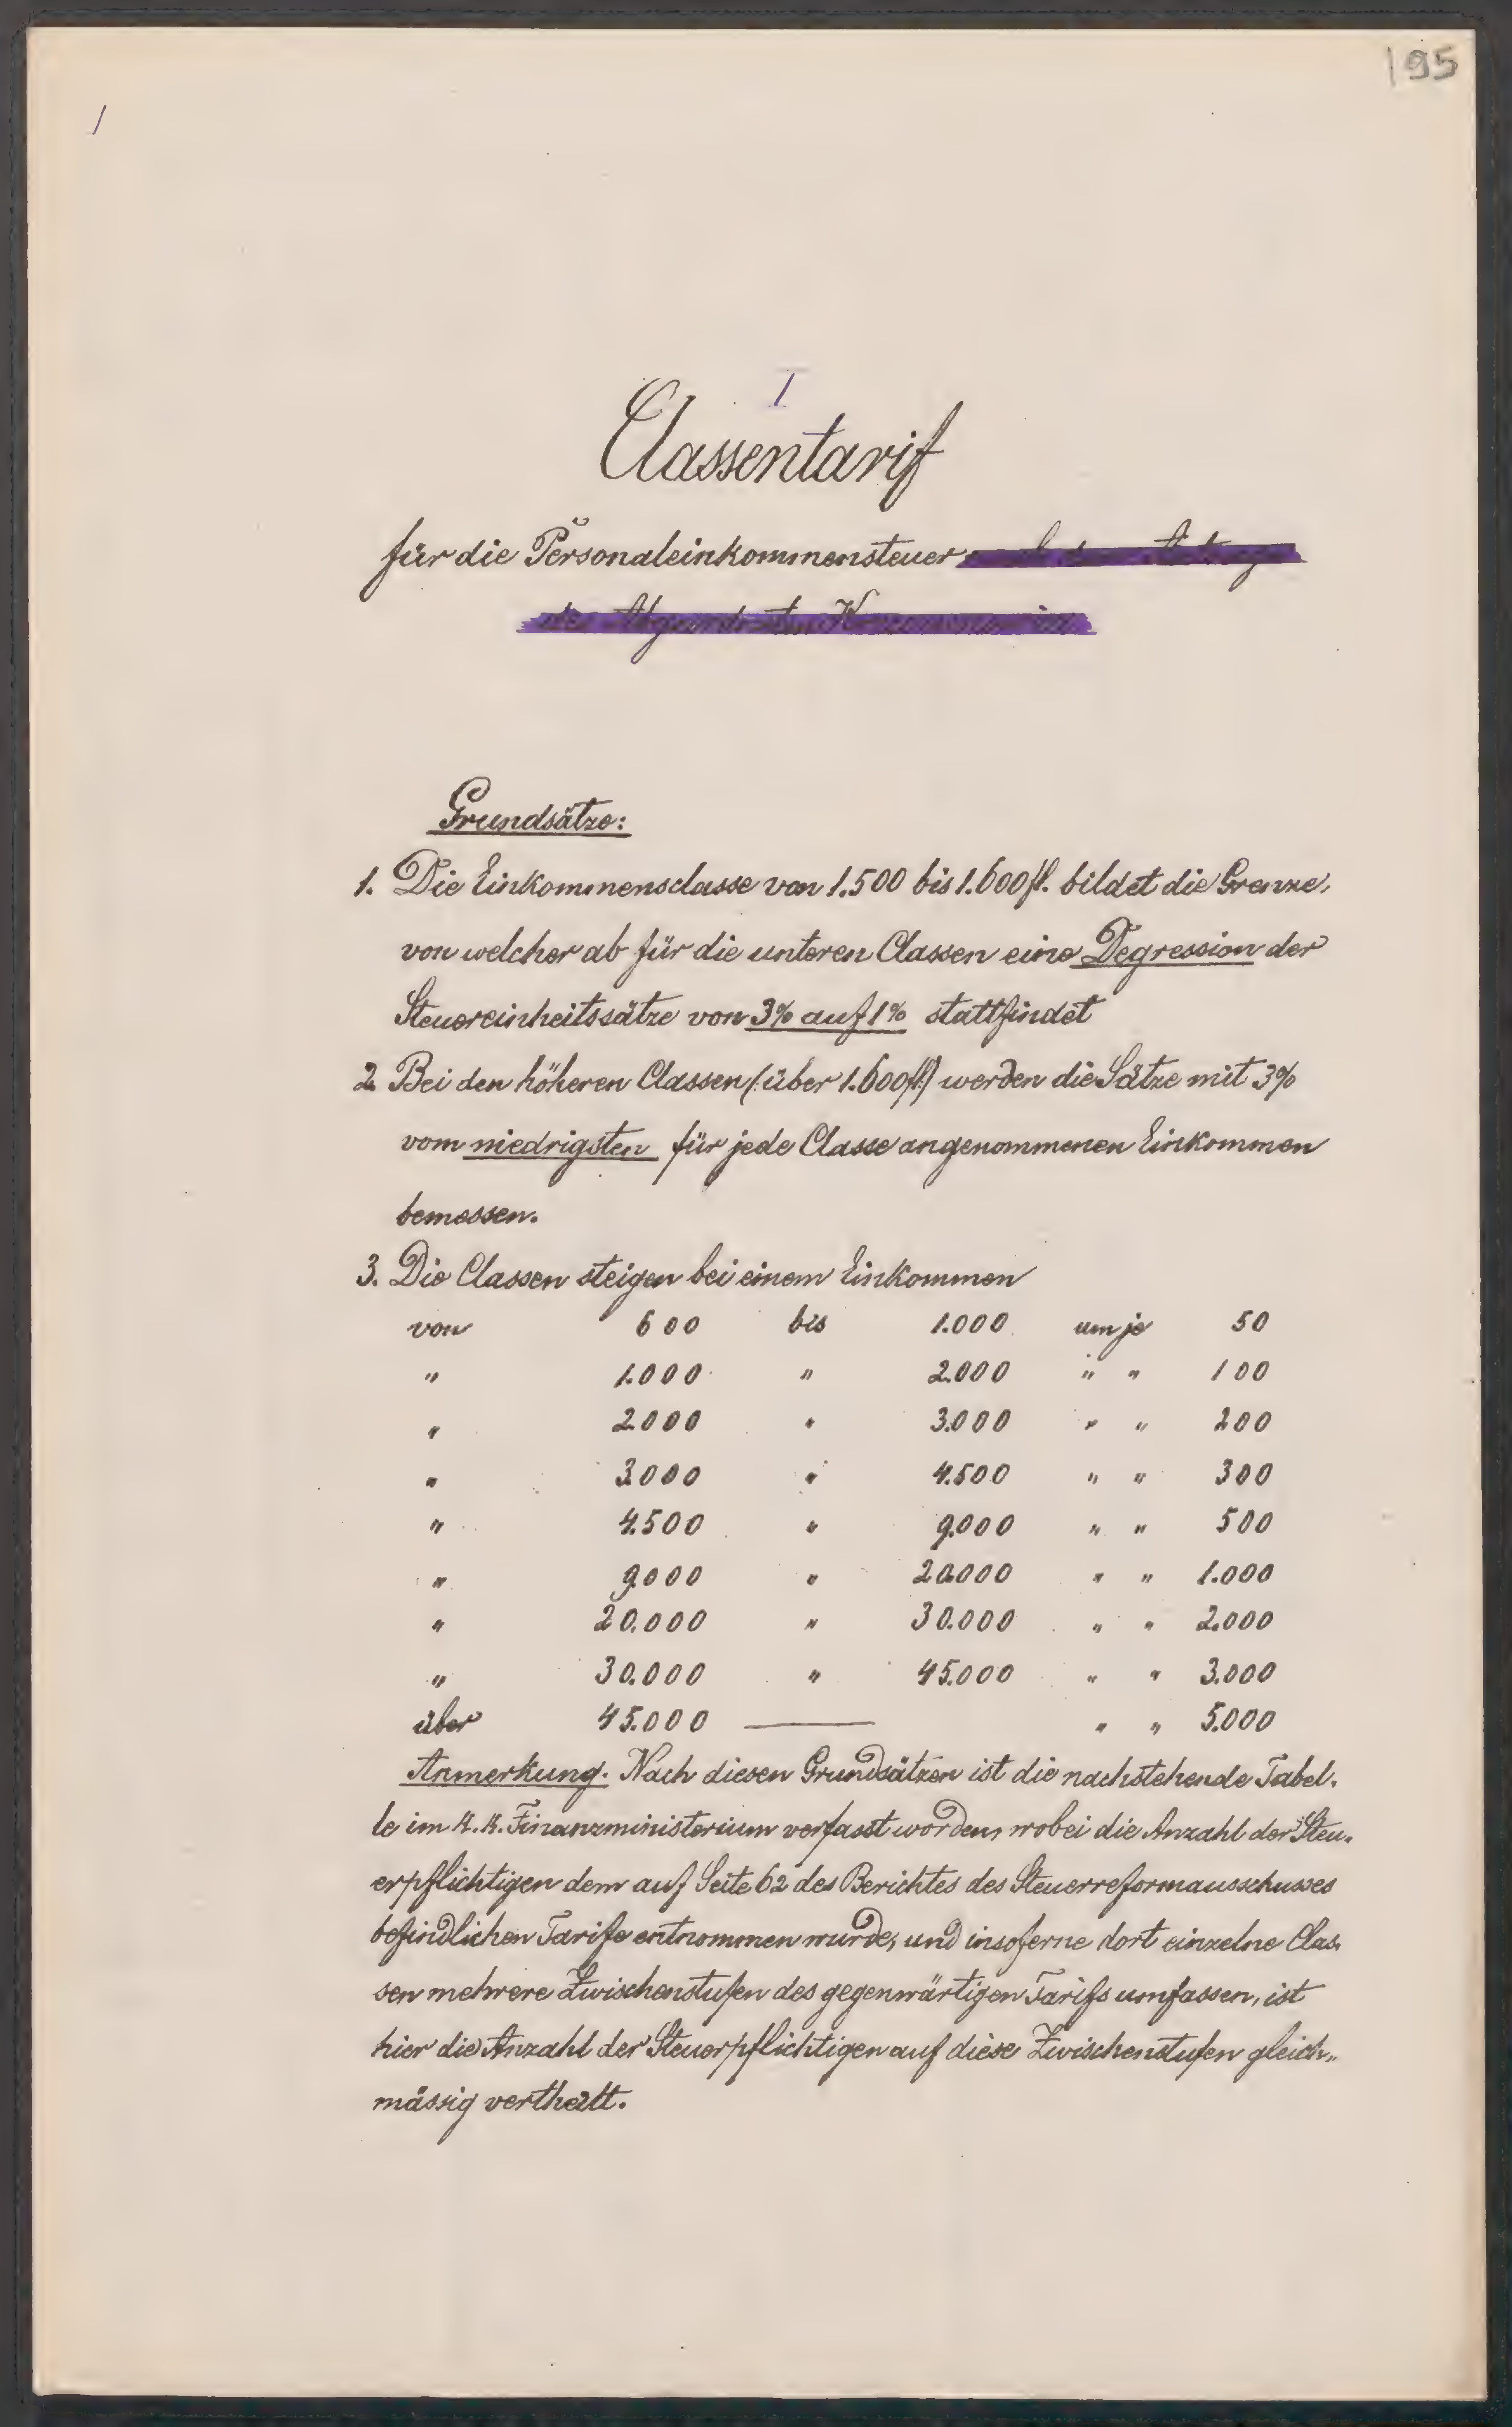 195
/
/
Classentarif
für die Personaleinkommensteuer
des Abgeordneten
Grundsätze:
1. Die Einkommensclasse von 1.500 bis 1.600 fl. bildet die Grenze,
von welcher ab für die unteren Classen eine Degression der
Steuereinheitssätze von 3% auf 1% stattfindet
2. Bei den höheren Classen (: über 1.600 fl:) werden die Sätze mit 3%
vom niedrigsten für jede Classe angenommenen Einkommen
bemessen.
3. Die Classen steigen bei einem Einkommen
von 600 bis 1.000 um je 50
" 1.000 " 2.000 " " 100
" 2.000 " 3.000 " " 200
" 3.000 " 4.500 " " 300
" 4.500 " 9.000 " " 500
" 9.000 " 20.000 " " 1.000
" 20.000 " 30.000 " " 2.000
" 30.000 " 45.000 " " 3.000
über 45.000 — " " 5.000
Anmerkung. Nach diesen Grundsätzen ist die nachstehende Tabel-
le im k. k. Finanzministerium verfasst worden, wobei die Anzahl der Steu-
erpflichtigen dem auf Seite 62 des Berichtes des Steuerreformausschusses
befindlichen Tarife entnommen wurde, und insoferne dort einzelne Clas-
sen mehrere Zwischenstufen des gegenwärtigen Tarifs umfassen, ist
hier die Anzahl der Steuerpflichtigen auf diese Zwischenstufen gleich-
mässig vertheilt.